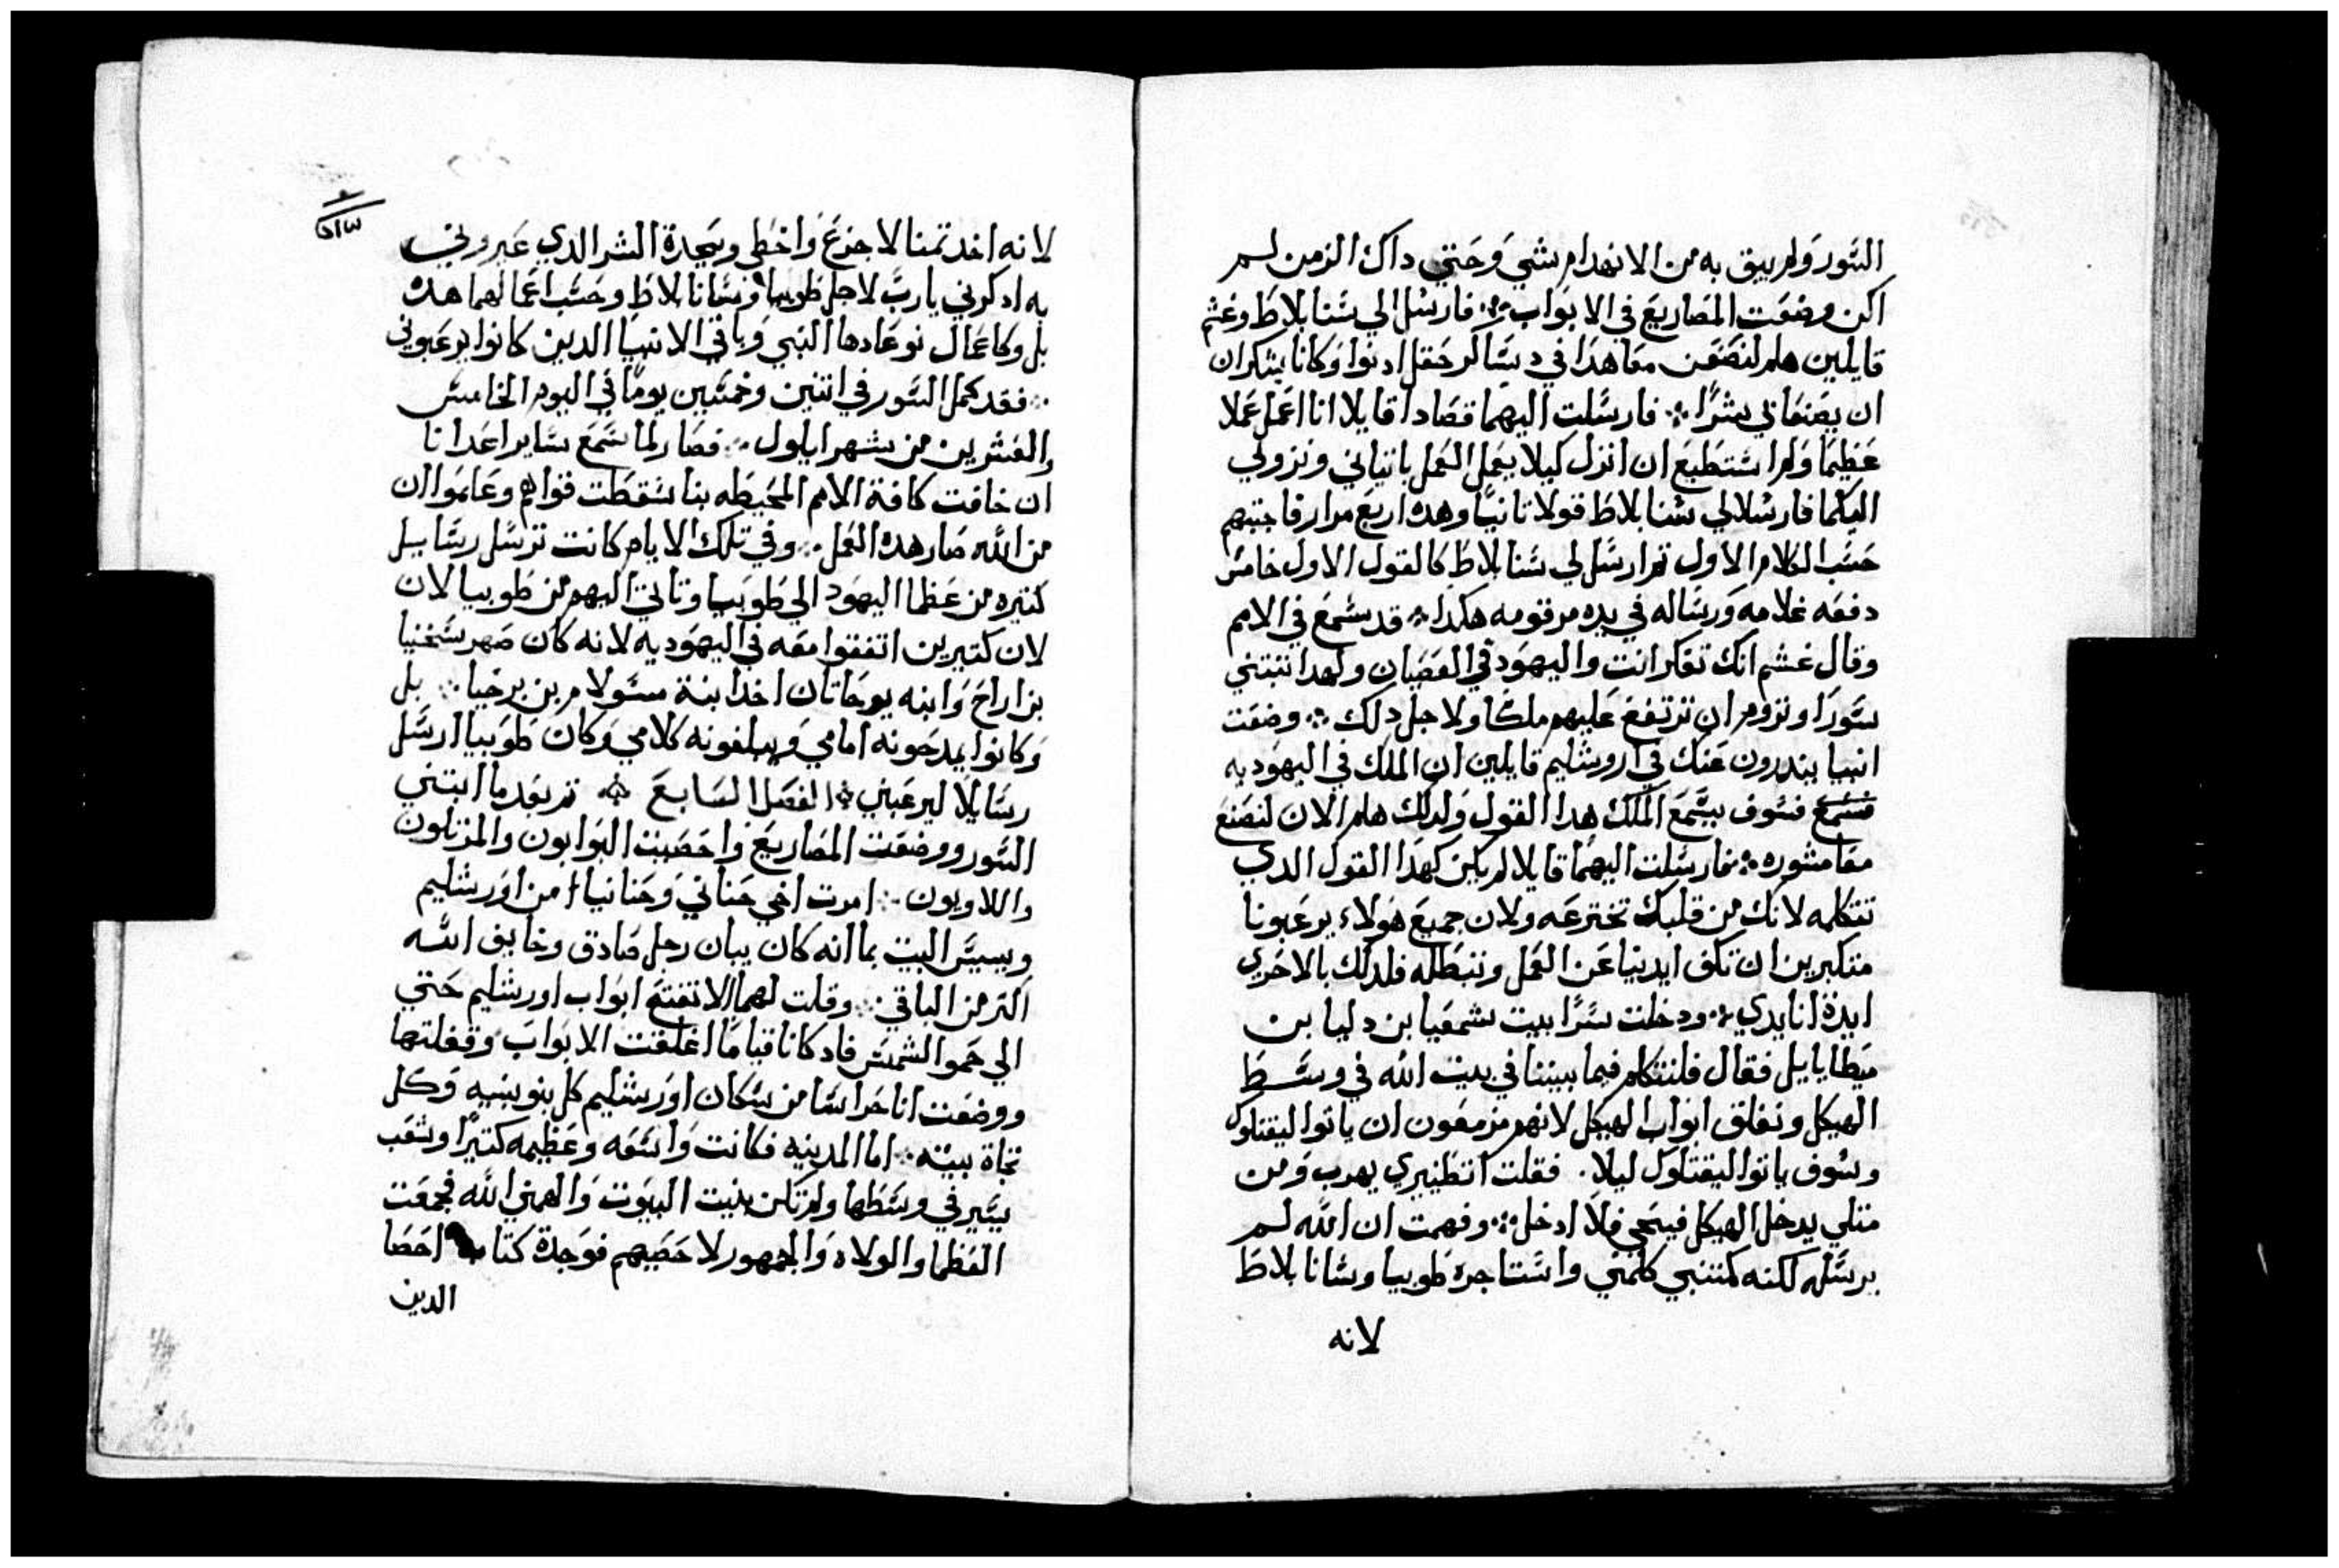 السور ولم يبق به من الانهدام شي وحتي داك الزمن لم
اكن وضعت المصاريع في الابواب فارسل الي سنابلاط وغشم
قايلين هلم لنصنعن معاهدا في دساكر حقل ادنوا وكانا يفتكران
ان يصنعا بي شرا فارسلت اليهما قصادا قايلا انا اعمل عملا
عظيما ولم استطيع ان انزل كيلا يعمل العمل باتياني ونزولي
اليكما فارسلا لي سنابلاط قولا تانيا وهده اربع مرار فاجبتهم
حسب الكلام الاول تم ارسل لي سنابلاط كالقول الاول خامس
دفعه غلامه ورساله في يده مرقومه هكدا قد سمع في الامم
وقال غشم انك تفكر انت واليهود في العصيان ولهدا تبتني
سورا وتروم ان ترتفع عليهم ملكا ولاجل دلك وضعت
انبيا يندرون عنك في اروشليم قايلين ان الملك في اليهوديه
فسمع فسوف يسمع الملك هدا القول ولدلك هلم الان لنصنع
معا مشوره فارسلت اليهما قايلا لم يكن كهدا القول الدي
تتكلمه لانك من قلبك تخترعه ولان جميع هولاء يرعبونا
مفتكرين ان تكف ايدينا عن العمل ونبطله فلدلك بالاحري
ايدة انا يدي ودخلت سرا بيت شمعيا بن دليا بن
ميطايايل فقال فلنتكلم فيما بيننا في بيت الله في وسط
الهيكل ونغلق ابواب الهيكل لانهم مزمعون ان ياتوا ليقتلوك
وسوف ياتوا ليقتلوك ليلا فقلت انظيري يهرب ومن
متلي يدخل الهيكل فيحيى فلا ادخل وفهمت ان الله لم
يرسله لكنه كمتنبي كلمني واستاجره طوبيا وسانابلاط
لانه
لانه اخد تمنا لاجزع واخطي ويجدة الشر الدي عيروني
به ادكرني يا رب لاجل طوبيا وسانابلاط وحسب اعمالهما هده
بل وكاعمال نوعادها النبي وباقي الانبيا الدين كانوا يرعبوني
فقد كمل السور في اتنين وخمسين يوما في اليوم الخامس
والعشرين من شهر ايلول فصار لما سمع ساير اعدانا
ان خافت كافة الامم المحيطه بنا سقطت قواهم وعلموا ان
من الله صار هده العمل وفي تلك الايام كانت ترسل رسايل
كتيره من عظما اليهود الي طوبيا وتاتي اليهم من طوبيا لان
لان كتيرين اتفقوا معه في اليهوديه لانه كان صهر سخنيا
بن اراح وابنه يوحاتان اخد ابنة مسولام بن برخيا بل
وكانوا يمدحونه امامي ويبلغونه كلامي وكان طوبيا ارسل
رسايلا ليرعبني الفصل السابع تم بعد ما ابتني
السور ووضعت المصاريع واحصيت البوابون والمرتلون
واللاويون امرت اخي حناني وحنانيا امن اورشليم
وبييس البيت بما انه كان يبان رجل صادق وخايف الله
اكتر من الباقي وقلت لهما لا تفتح ابواب اورشليم حتي
الي حمو الشمس فاد كانا قياما اغلقت الابواب وقفلتها
ووضعت انا حراسا من سكان اورشليم كل بنوبتيه وكل
تجاة بيته اما المدينه فكانت واسعه وعظيمه كتيرا وشعب
يسير في وسطها ولم تكن بنيت البيوت والهمني الله فجمعت
العظما والولاه والجمهور لاحصيهم فوجدة كتاب احصا
الدين